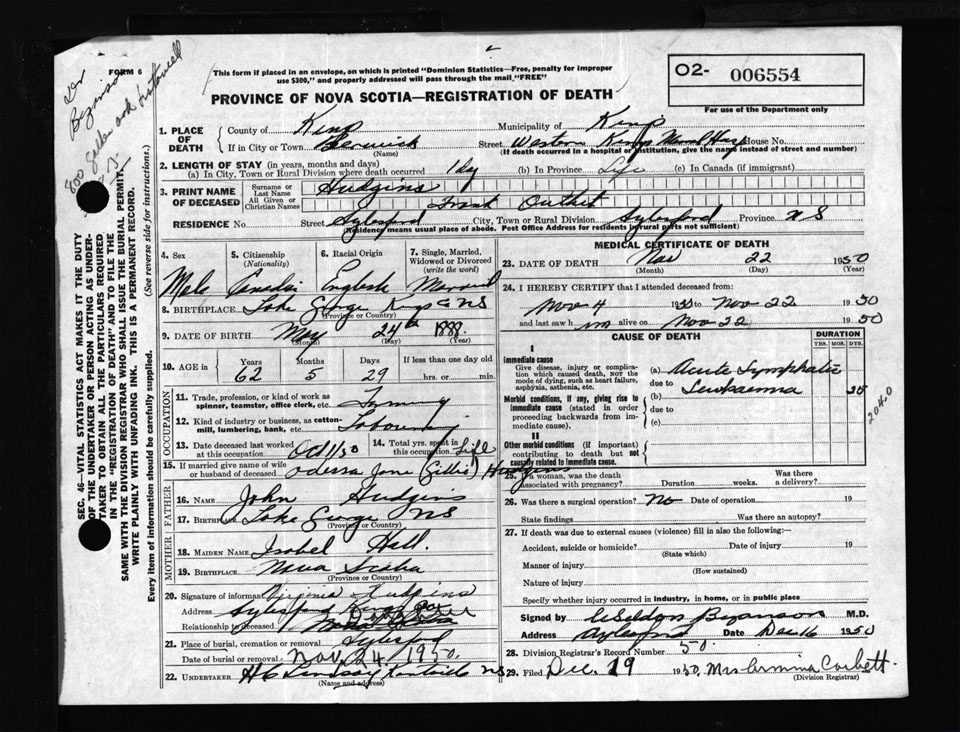 FORM 6
(This form if placed in an envelope, on which is printed "Dominion Statistics—Free, penalty for improper
use $300," and properly addressed will pass through the mail "FREE"
PROVINCE OF NOVA SCOTIA—REGISTRATION OF DEATH
O2- 006554
For use of the Department only
1. PLACE OF DEATH
County of Kings Municipality of Kings
If in City or Town Berwick Street Western Kings Meml Hosp House No.
(Name) (If death occurred in a hospital or institution, give the name instead of street and number)
2. LENGTH OF STAY (in years, months and days)
(a) In City, Town or Rural Division where death occurred 1 day (b) In Province Life (c) In Canada (if immigrant)
3. PRINT NAME OF DECEASED
Surname or Last Name Hudgins
All Given or Christian Names Frank Outhit
RESIDENCE No. Street Aylesford City, Town or Rural Division Aylesford Province NS
(Residence means usual place of abode. Post Office Address for residents in rural parts not sufficient)
4. Sex 5. Citizenship (Nationality) 6. Racial Origin 7. Single, Married, Widowed or Divorced (write the word)
Male English Married
8. BIRTHPLACE Lake George Kings Co NS
(Province or Country)
9. DATE OF BIRTH May 24th 1888
(Month) (Day) (Year)
10. AGE in Years Months Days If less than one day old
62 5 29 hrs. or min.
OCCUPATION
11. Trade, profession, or kind of work as spinner, teamster, office clerk, etc.
12. Kind of industry or business, as cotton-mill, lumbering, bank, etc. Labouring
13. Date deceased last worked at this occupation Oct 1/50 14. Total yrs. spent in this occupation Life
15. If married give name of wife or husband of deceased Odessa Jane (Gillis) Hudgins
FATHER
16. NAME John Hudgins
17. BIRTHPLACE Lake George NS
(Province or Country)
MOTHER
18. MAIDEN NAME Isobel Hall.
19. BIRTHPLACE Nova Scotia
(Province or Country)
20. Signature of informant Virginia Hudgins
Address Aylesford Kings Co
Relationship to deceased
21. Place of burial, cremation or removal Aylesford
Date of burial or removal Nov. 24 / 1950.
22. UNDERTAKER H C Lindsay NS
(Name and address)
MEDICAL CERTIFICATE OF DEATH
23. DATE OF DEATH Nov 22 1950
(Month) (Day) (Year)
24. I HEREBY CERTIFY that I attended deceased from:
Nov 4 1950 to Nov 22 1950
and last saw him alive on Nov 22 1950
CAUSE OF DEATH DURATION
YRS. MOS. DYS.
I
Immediate cause
Give disease, injury or complication which caused death, NOT the mode of dying, such as heart failure, asphyxia, asthenia, etc.
(a) Acute Lymphatic
due to
(b) Leukaemia
Morbid conditions, if any, giving rise to immediate cause (stated in order proceeding backwards from immediate cause).
due to
(c)
II
Other morbid conditions (if important) contributing to death but not causally related to immediate cause.
2040
25. If a woman, was the death associated with pregnancy? Duration weeks. Was there a delivery?
26. Was there a surgical operation? No Date of operation 19
State findings Was there an autopsy?
27. If death was due to external causes (violence) fill in also the following:
Accident, suicide or homicide? Date of injury 19
(State which)
Manner of injury
(How sustained)
Nature of injury
Specify whether injury occurred in industry, in home, or in public place
Signed by Weldon Bezanson M.D.
Address Aylesford Date Dec 16 1950
28. Division Registrar's Record Number 50.
29. Filed Dec. 19 1950, Mrs Armina Corbett.
(Division Registrar)
SEC. 46—VITAL STATISTICS ACT MAKES IT THE DUTY
OF THE UNDERTAKER OR PERSON ACTING AS UNDER-
TAKER TO OBTAIN ALL THE PARTICULARS REQUIRED
IN THE "REGISTRATION OF DEATH" AND TO FILE THE
SAME WITH THE DIVISION REGISTRAR WHO SHALL ISSUE THE BURIAL PERMIT.
WRITE PLAINLY WITH UNFADING INK. THIS IS A PERMANENT RECORD.
Every item of information should be carefully supplied. (See reverse side for instructions.)